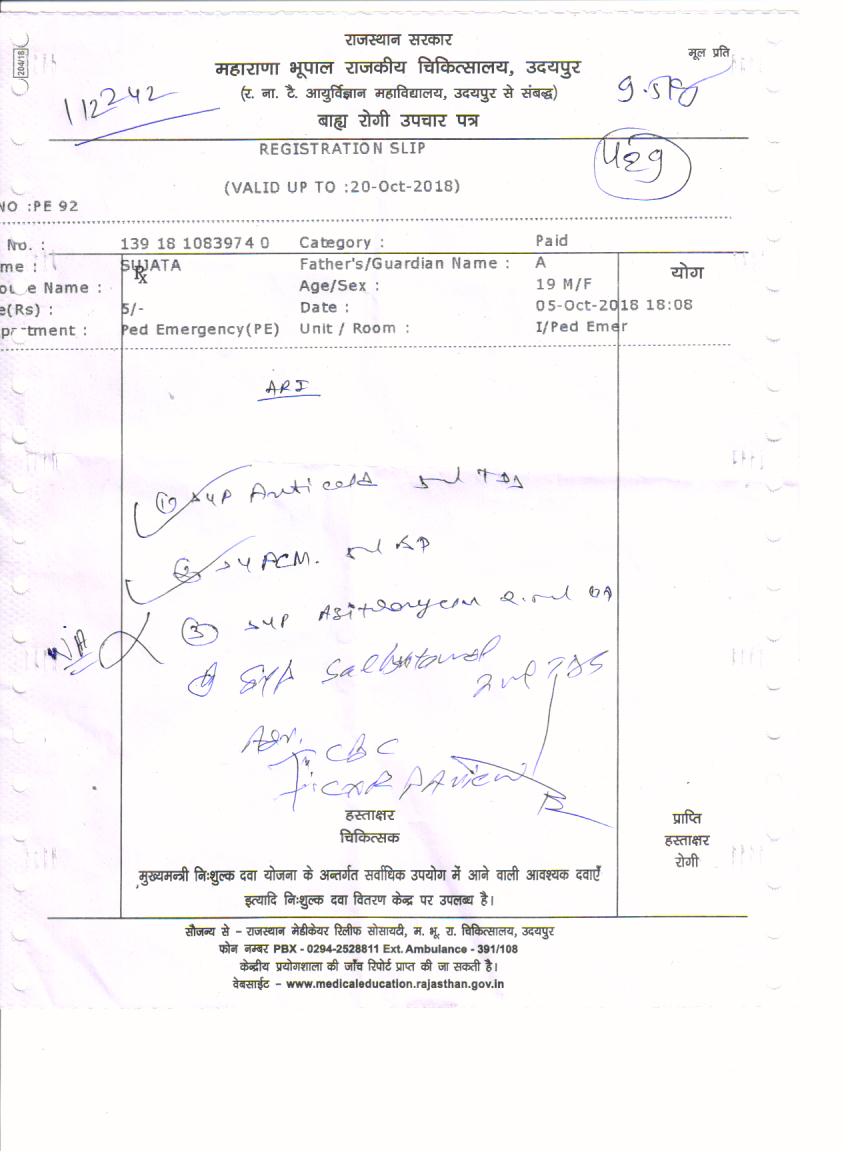 204/18
राजस्थान सरकार
मूल प्रति
महाराणा भूपाल राजकीय चिकित्सालय, उदयपुर
(र. ना. टै. आयुर्विज्ञान महाविद्यालय, उदयपुर से संबद्ध)
112242
बाह्य रोगी उपचार पत्र
REGISTRATION SLIP
(VALID UP TO :20-Oct-2018)
NO :PE 92
No. : 139 18 1083974 0 Category : Paid
me : SUJATA Father's/Guardian Name : A योग
Rx
e Name : Age/Sex : 19 M/F
e(Rs) : 5/- Date : 05-Oct-2018 18:08
tment : Ped Emergency(PE) Unit / Room : I/Ped Emer
ARI
① syp Anticold 5ml TDS
② syp PCM. 5ml
N/A ③ syp Azithromycin 2.5ml OD
④ Syp Salbutamol 2ml TDS
Adv. CBC
CXR PA view
हस्ताक्षर
चिकित्सक
प्राप्ति
हस्ताक्षर
रोगी
मुख्यमन्त्री निःशुल्क दवा योजना के अन्तर्गत सर्वाधिक उपयोग में आने वाली आवश्यक दवाएँ
इत्यादि निःशुल्क दवा वितरण केन्द्र पर उपलब्ध है।
सौजन्य से – राजस्थान मेडीकेयर रिलीफ सोसायटी, म. भू. रा. चिकित्सालय, उदयपुर
फोन नम्बर PBX - 0294-2528811 Ext. Ambulance - 391/108
केन्द्रीय प्रयोगशाला की जाँच रिपोर्ट प्राप्त की जा सकती है।
वेबसाईट – www.medicaleducation.rajasthan.gov.in